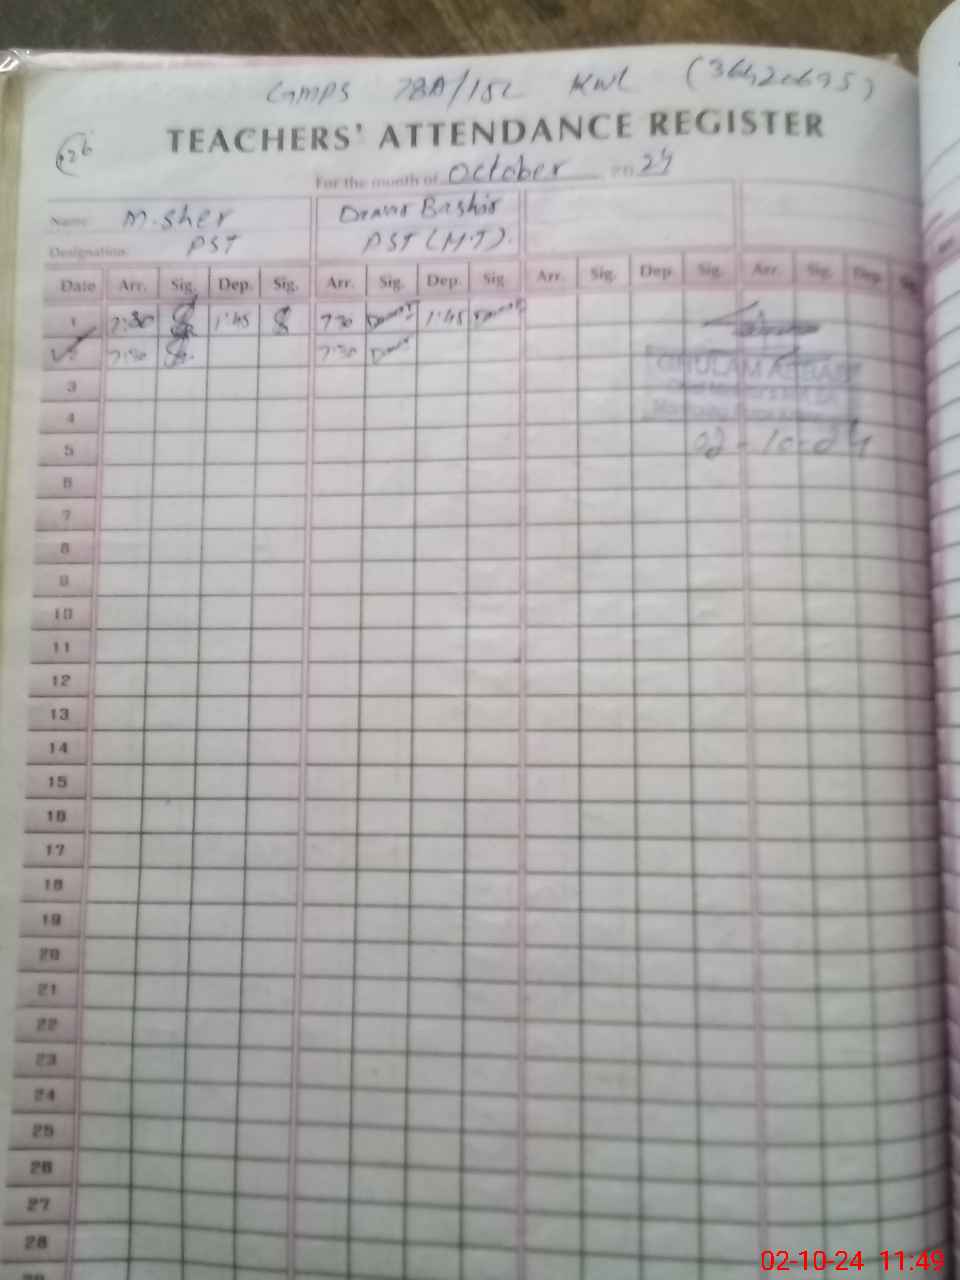 GMPS 78A/15L KWL (36420695)
TEACHERS' ATTENDANCE REGISTER
For the month of October 2024
Name M. Sher Bashir
Designation PST PST (M.T).
Date Arr. Sig. Dep. Sig. Arr. Sig. Dep. Sig Arr. Sig. Dep. Sig. Arr. Sig. Dep. Sig
1 7:30 1:45 7:30 1:45
2 7:30 7:30
GHULAM ABBAS
3
4
02-10-24
5
6
7
8
9
10
11
12
13
14
15
16
17
18
19
20
21
22
23
24
25
26
27
28
02-10-24 11:49